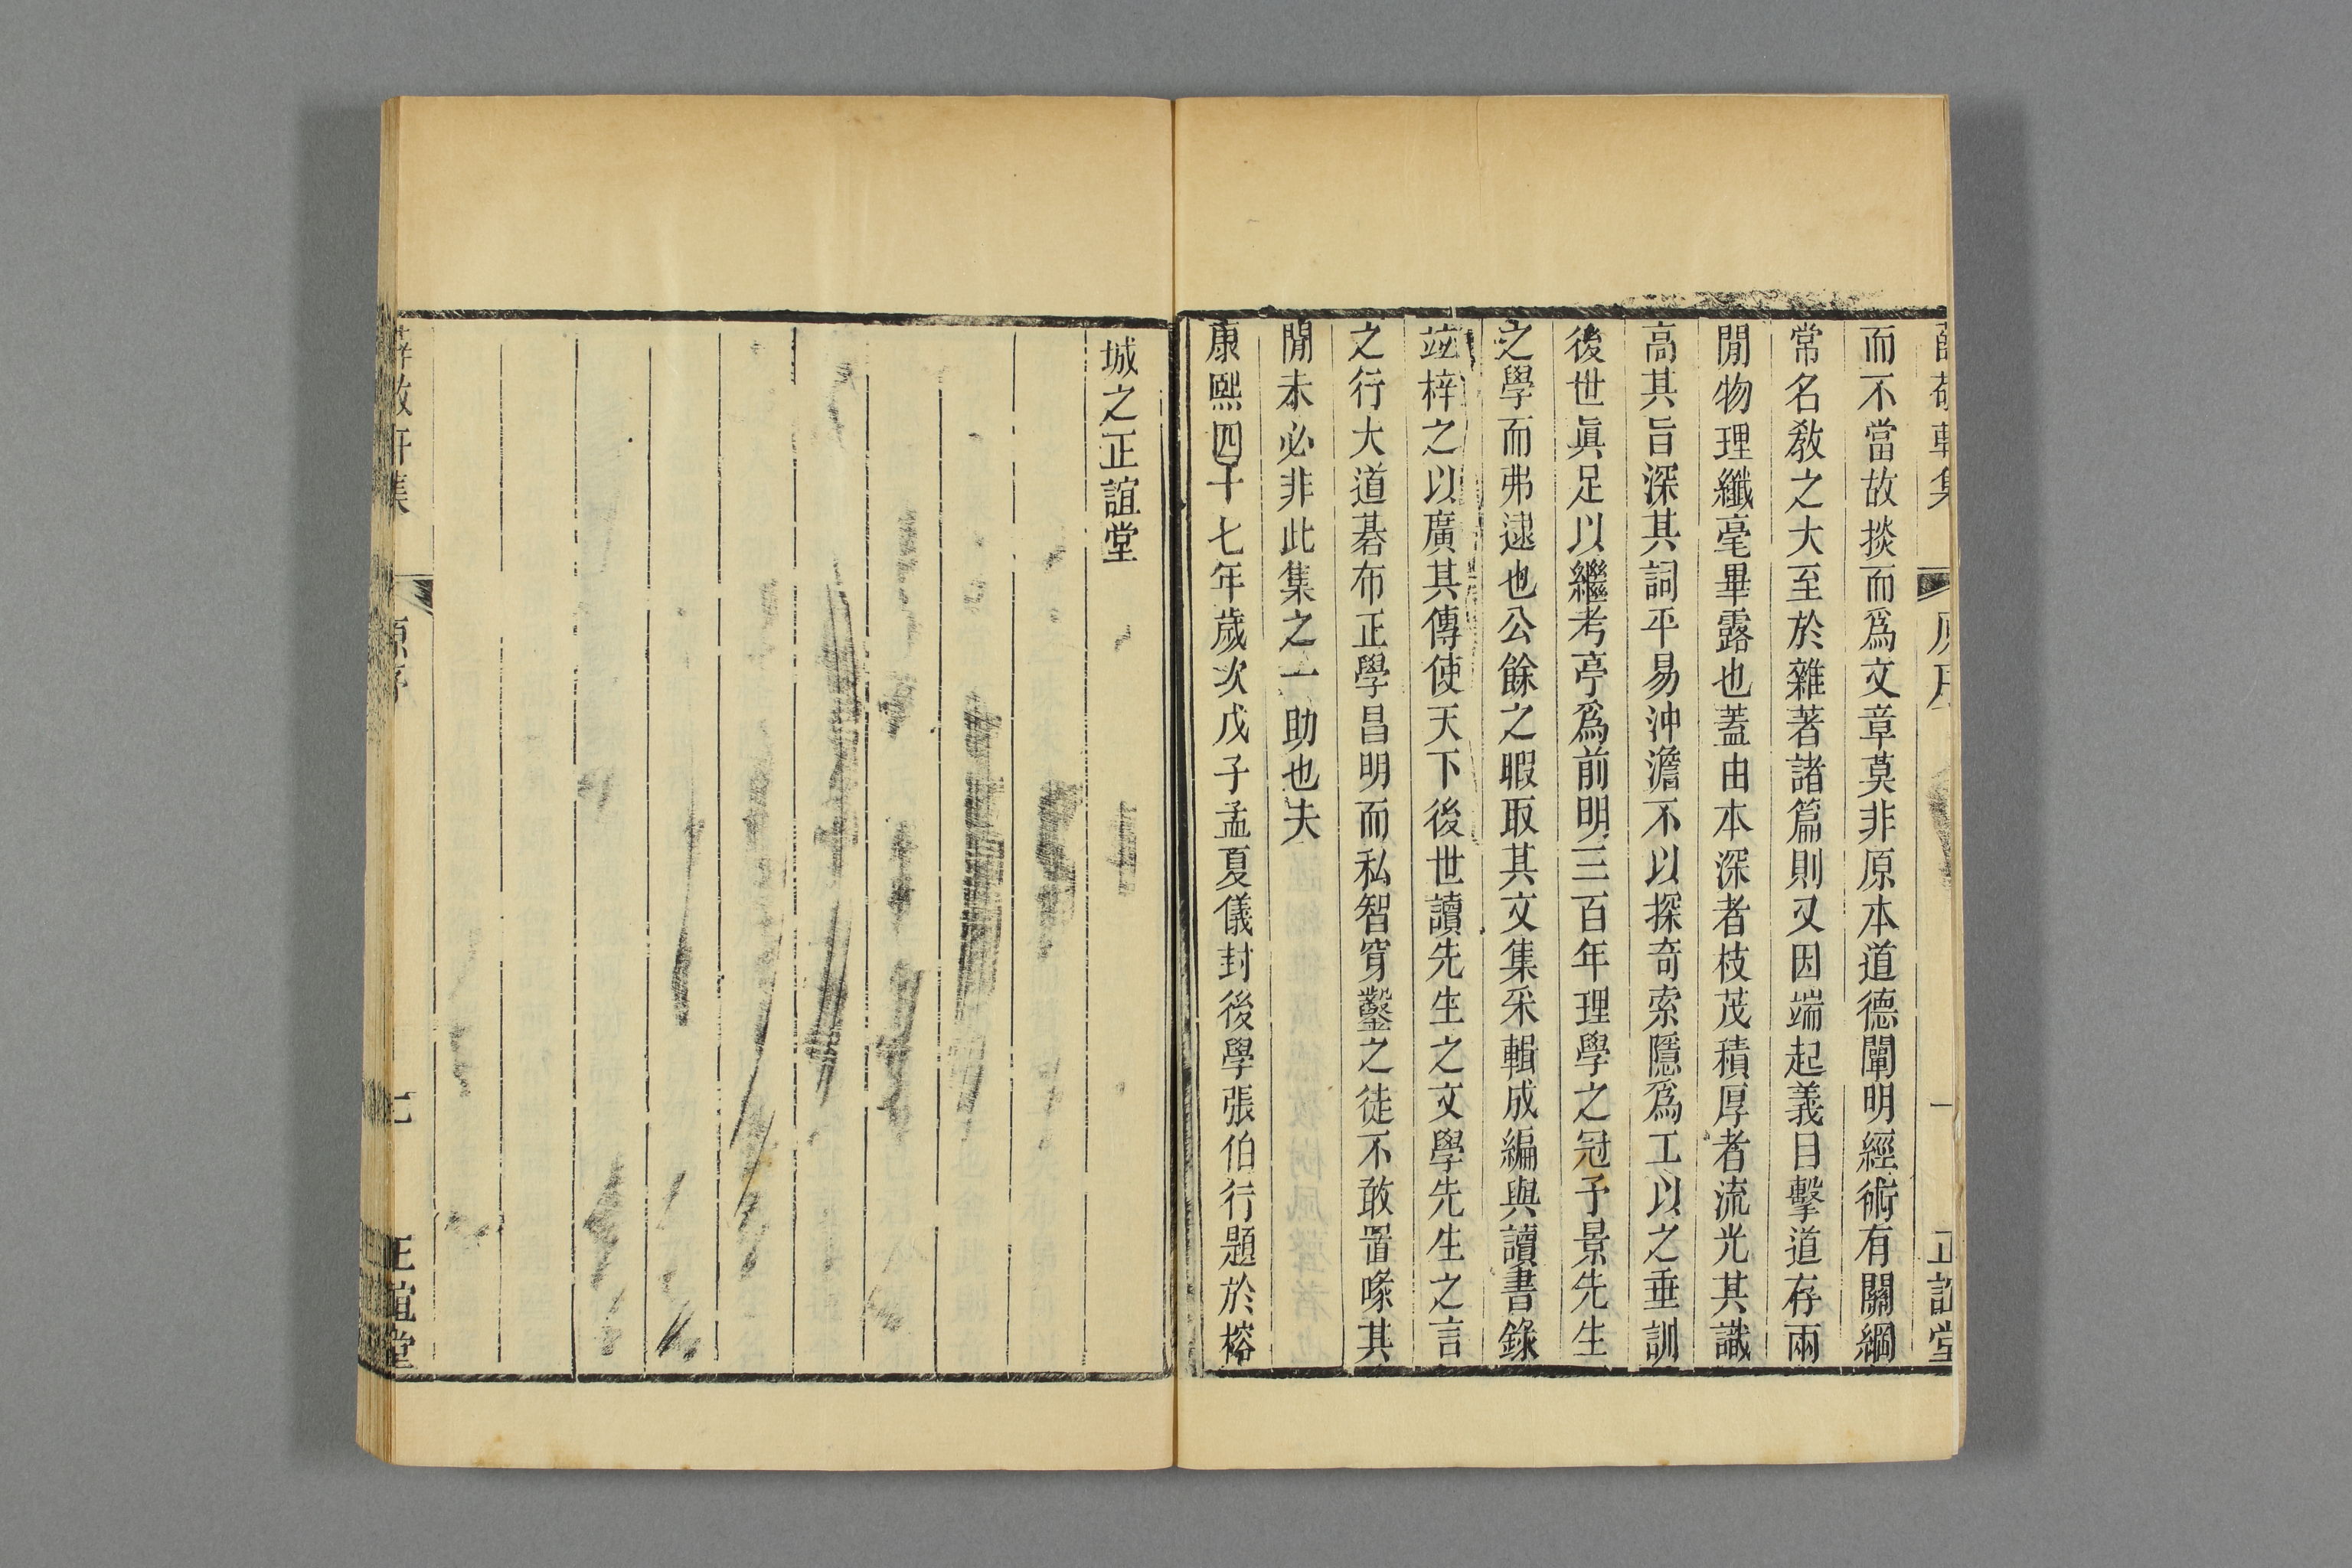 而不當故掞而爲文章莫非原本道德闡明經術有關綱
常名敎之大至於雜著諸篇則又因端起義目擊道存兩
閒物理纖毫畢露也蓋由本深者枝茂積厚者流光其識
高其旨深其詞平易沖澹不以探奇索隱爲工以之垂訓
後世眞足以繼考亭爲前明三百年理學之冠予景先生
之學而弗逮也公餘之暇取其文集采輯成編與讀書錄
竝梓之以廣其傳使天下後世讀先生之文學先生之言
之行大道碁布正學昌明而私智穿鑿之徒不敢置喙其
閒未必非此集之一助也夫
康熙四十七年歲次戊子孟夏儀封後學張伯行題於榕
城之正誼堂
薛敬軒集 原序 七 正誼堂